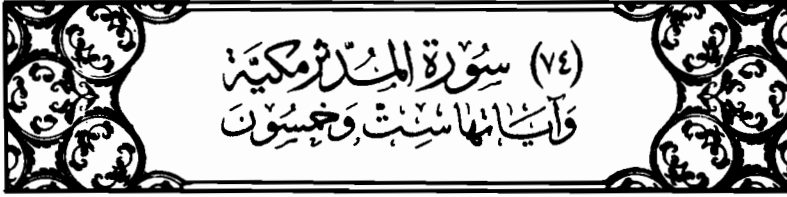 (٧٤) سُورَة المُدَّثِّر مَكِيَّة
وَآيَاتهَا سِتٌّ وَخَمْسُونَ